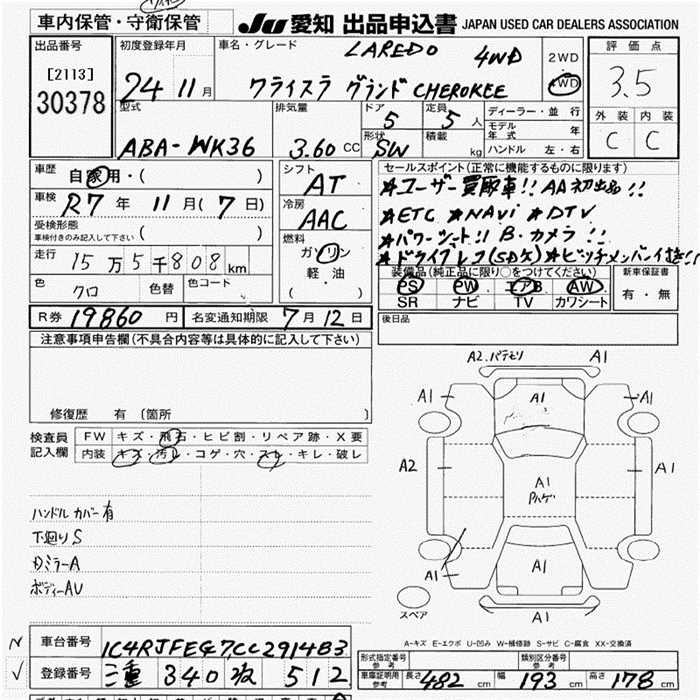 車内保管・守衛保管
JU 愛知 出品申込書 JAPAN USED CAR DEALERS ASSOCIATION
出品番号 初度登録年月 車名・グレード LAREDO 4WD 2WD 評価点
[2113] 30378 24 11月 クライスラ グランド CHEROKEE 4WD 3.5
型式 排気量 ドア 5 定員 5人 ディーラー・並行 外装 内装
モデル年式 年
ABA-WK36 3.60 CC 形状 SW 積載 kg ハンドル 左・右 C C
車歴 自家用・( ) シフト AT セールスポイント(正常に機能するものに限ります)
車検 R7年 11月(7日) 冷房 AAC ★ユーザー買取車!! AA初出品!!
受検形態 ( ) ★ETC ★NAVi ★DTV
車検付きのみ記入して下さい
燃料 ガソリン ★パワーシート!! B・カメラ!!
走行 15万5千808km 軽油 ★ドライブレコ(SD欠)
色 クロ 色替 色コード ( ) 装備品(純正品に限り○をつけてください) 新車保証書
PS PW エアB AW 有・無
SR ナビ TV カワシート
R券 19860円 名変通知期限 7月12日 後日品
注意事項申告欄(不具合内容等は具体的に記入して下さい)
修復歴 有 [箇所 ]
検査員記入欄 FW キズ・飛石・ヒビ割・リペア跡・X要
内装 キズ・汚レ・コゲ・穴・スレ・キレ・破レ
ハンドルカバー有
下廻りS
ボディーAU
A2.バテモリ A1
A1 A1 A1
A2 A1 A1
A1 A1 A1
スペア A1
A-キズ E-エクボ U-凹み W-補修跡 S-サビ C-腐食 XX-交換済
N 車台番号 1C4RJFEG7CC291483
✓ 登録番号 三重 340 512
形式指定番号 参考 類別区分番号 参考
車庫証明用 参考 長さ 482cm 幅 193cm 高さ 178cm